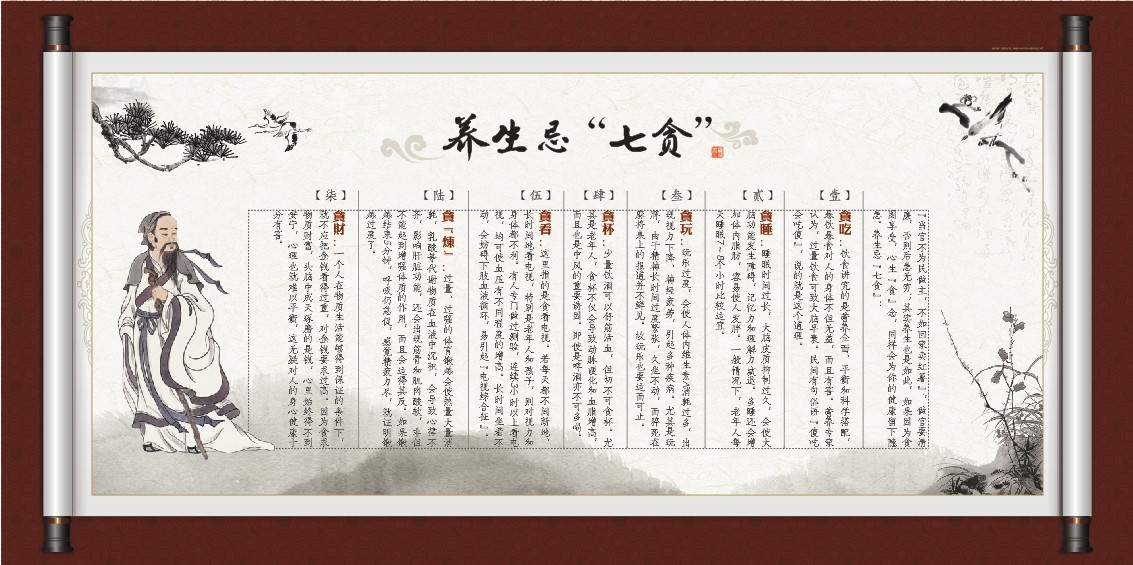 养生忌“七贪”
“当官不为民做主，不如回家卖红薯”，做官要清
廉，否则后患无穷；其实养生也是如此，如果因为贪
图享受，心生“贪”念，同样会为你的健康留下隐
患。养生忌“七贪”：
【壹】
贪吃：饮食讲究的是营养全面、平衡和科学搭配，
暴饮暴食对人的身体不但无益，而且有害。营养专家
认为，过量饮食可致大脑早衰。民间有句俗语“傻吃
会吃傻”，说的就是这个道理。
【贰】
贪睡：睡眠时间过长，大脑皮质抑制过久，会使大
脑功能发生障碍，记忆力和理解力衰退。多睡还会增
加体内脂肪，容易使人发胖。一般情况下，老年人每
天睡眠7～8个小时比较适宜。
【叁】
贪玩：玩乐过度，会使人体内维生素A消耗过多，出
现视力下降、神经疲劳，引起多种疾病。尤其是玩
牌，由于精神长时间过度紧张，久坐不动，而猝死在
麻将桌上的报道并不鲜见。故玩乐也要适可而止。
【肆】
贪杯：少量饮酒可以舒筋活血，但切不可贪杯。尤
其是老年人，贪杯不仅会导致动脉硬化和血脂增高，
而且也是中风的重要诱因。即使是啤酒亦不可多喝。
【伍】
贪看：这里指的是贪看电视。若每天都不间断地、
长时间地看电视，特别是老年人和孩子，则对视力和
身体都不利。有人专门做过测验，连续5小时以上看电
视，均可使血压有不同程度的增高。长时间坐着不
动，会妨碍下肢血液循环，易引起“电视综合征”。
【陆】
贪“炼”：过量、过强的体育锻炼会使热量大量消
耗，乳酸等代谢物质在血液中沉积，会导致心律不
齐，影响肝脏功能，还会出现筋骨和肌肉酸软，非但
不能起到增强体质的作用，而且会适得其反。如果锻
炼结束5分钟，呼吸仍急促，感觉精疲力尽，就证明锻
炼过度了。
【柒】
贪财：一个人在物质生活能够得到保证的条件下，
就不应把金钱看得过重，对金钱要求过高。因为贪求
物质财富，头脑中成天琢磨的是钱，心里始终得不到
安宁，心理也就难以平衡，这无疑对人的身心健康十
分有害。